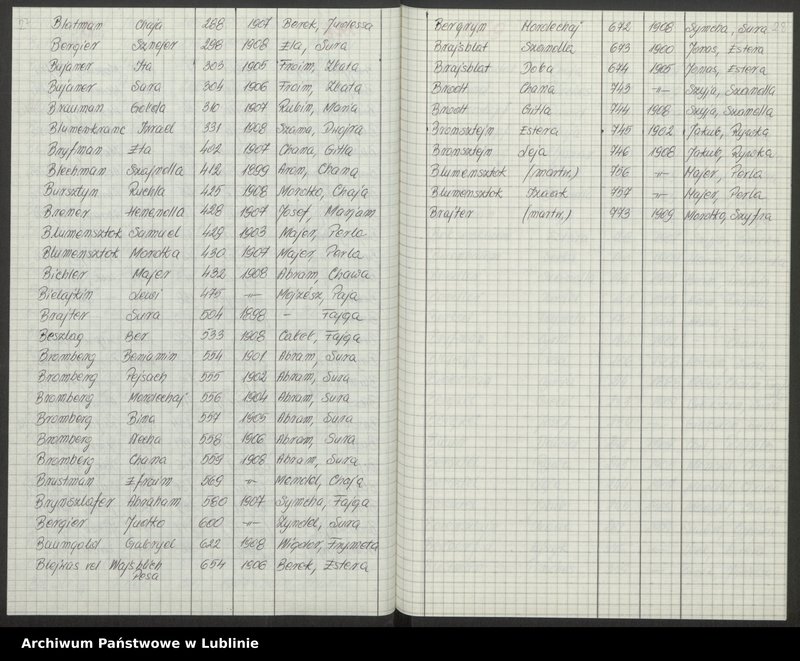 Blatman Chaja 268 1907 Berek, Judessa
Bergier Sznejer 298 1908 Eta, Sura
Bujaner Ita 303 1905 Froim, Złata
Bujaner Sura 304 1906 Froim, Złata
Brauman Golda 310 1907 Rubin, Mania
Blumenkranc Izrael 331 1908 Szama, Dwojra
Bryfman Eta 402 1907 Chana, Gitla
Blechman Szajndla 412 1899 Aron, Chana
Bursztyn Ruchla 425 1908 Mordko, Chaja
Brener Henendla 428 1907 Josef, Marjam
Blumensztok Samuel 429 1903 Majer, Perla
Blumensztok Mordka 430 1907 Majer, Perla
Bichler Majer 432 1908 Abram, Chawa
Bielajkin Lewi 475 -"- Mojżesz, Paja
Brajter Sura 504 1898 - Fajga
Beszlag Ber 533 1908 Calel, Fajga
Bromberg Beniamin 554 1901 Abram, Sura
Bromberg Pejsach 555 1902 Abram, Sura
Bromberg Mordechaj 556 1904 Abram, Sura
Bromberg Bina 557 1905 Abram, Sura
Bromberg Necha 558 1906 Abram, Sura
Bromberg Chana 559 1908 Abram, Sura
Brustman Efraim 569 -"- Mendel, Chaja
Brynszlafer Abraham 580 1907 Symcha, Fajga
Bergier Judko 600 -"- Zyndel, Sura
Baumgold Gabryel 622 1908 Wigder, Frymeta
Blejwas vel Wajsblech 654 1906 Berek, Estera
Pesa
Bergryn Mordechaj 672 1908 Symcha, Sura
Brajsblat Szandla 673 1900 Jonas, Estera
Brajsblat Doba 674 1905 Jonas, Estera
Brodt Chana 743 -"- Szyja, Szandla
Brodt Gitla 744 1908 Szyja, Szandla
Bromsztejn Estera 745 1902 Jakub, Rywka
Bronsztejn Leja 746 1908 Jakub, Rywka
Blumensztok (martw.) 756 -"- Majer, Perla
Blumensztok Izaak 757 -"- Majer, Perla
Brajter (martw.) 773 1909 Mordko, Szyfra
Archiwum Państwowe w Lublinie